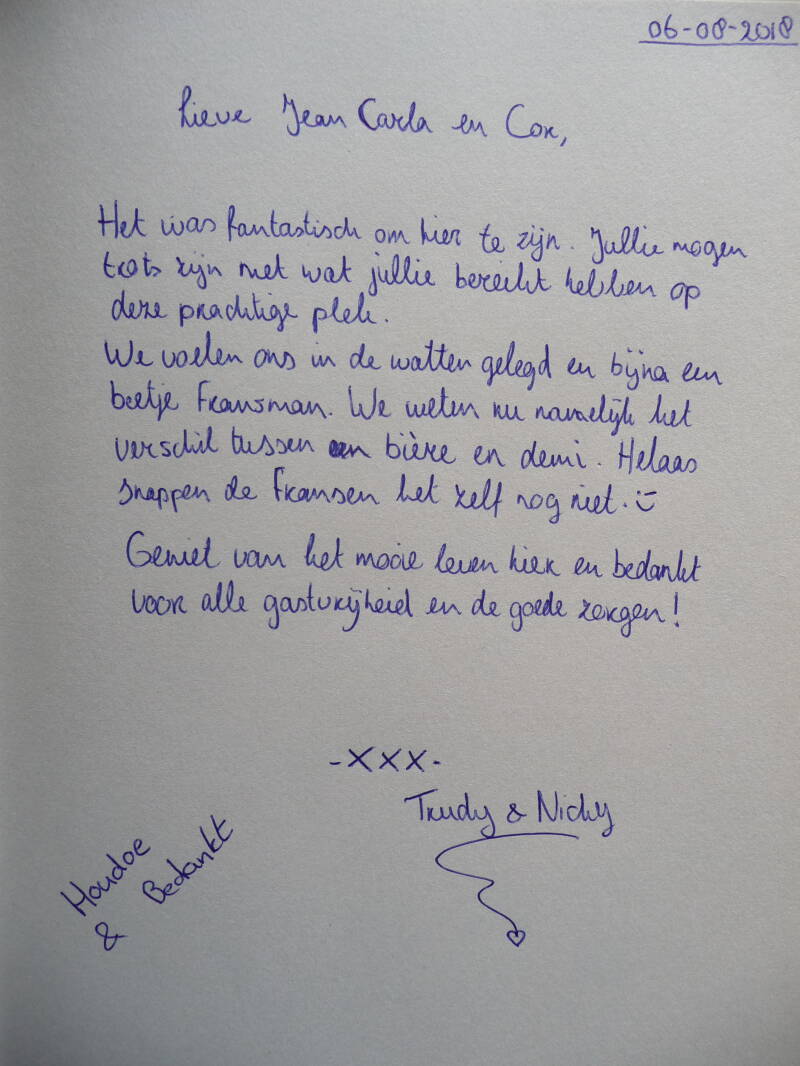 06-08-2018
Lieve Jean Carla en Cor,
Het was fantastisch om hier te zijn. Jullie mogen
trots zijn met wat jullie bereikt hebben op
deze prachtige plek.
We voelen ons in de watten gelegd en bijna een
beetje Fransman. We weten nu namelijk het
verschil tussen een bière en demi. Helaas
snappen de Fransen het zelf nog niet. :)
Geniet van het mooie leven hier en bedankt
voor alle gastvrijheid en de goede zorgen!
-XXX-
Trudy & Nicky
Houdoe
& Bedankt